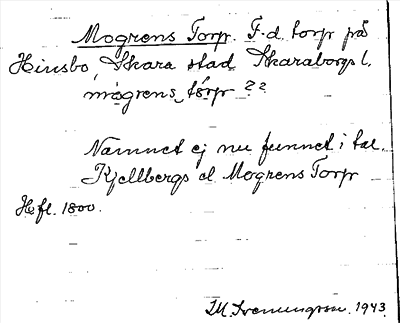 Mogrens Torp. F.d. torp på
Hinsbo, Skara stad Skaraborgs l.
mögrens, tårp ??
Namnet ej nu funnet i tal.
Kjellbergs el Mogrens Torp
Hfl. 1800.
1943